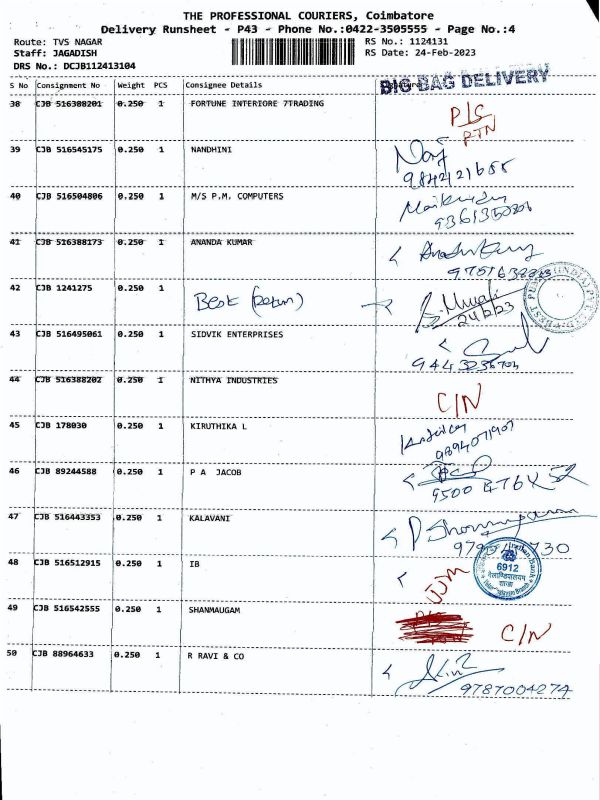 THE PROFESSIONAL COURIERS, Coimbatore
Delivery Runsheet - P43 - Phone No.:0422-3505555 - Page No.:4
Route: TVS NAGAR RS No.: 1124131
Staff: JAGADISH RS Date: 24-Feb-2023
DRS No.: DCJB112413104
BIG BAG DELIVERY
S No Consignment No Weight PCS Consignee Details
38 CJB 516388201 0.250 1 FORTUNE INTERIORE 7TRADING
P/C
RTN
39 CJB 516545175 0.250 1 NANDHINI
40 CJB 516504806 0.250 1 M/S P.M. COMPUTERS
41 CJB 516388173 0.250 1 ANANDA KUMAR
42 CJB 1241275 Best (Return)
24/2/23
43 CJB 516495061 0.250 1 SIDVIK ENTERPRISES
44 CJB 516388202 0.250 1 NITHYA INDUSTRIES
C/N
45 CJB 178030 0.250 1 KIRUTHIKA L
9894071907
46 CJB 89244588 0.250 1 P A JACOB
47 CJB 516443353 0.250 1 KALAVANI
48 CJB 516512915 0.250 1 IB
Indian Bank
6912
49 CJB 516542555 0.250 1 SHANMAUGAM
C/N
50 CJB 88964633 0.250 1 R RAVI & CO
9787004274